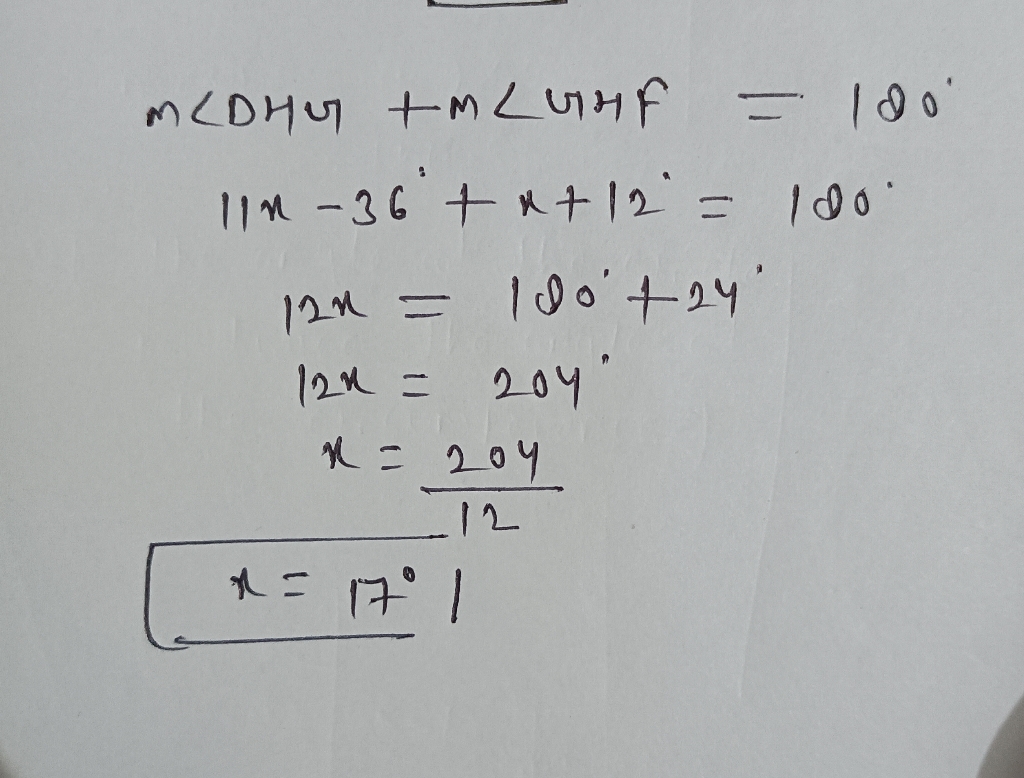 m∠DHG + m∠GHF = 180°
11x - 36° + x + 12° = 180°
12x = 180° + 24°
12x = 204°
x = 204
12
x = 17°